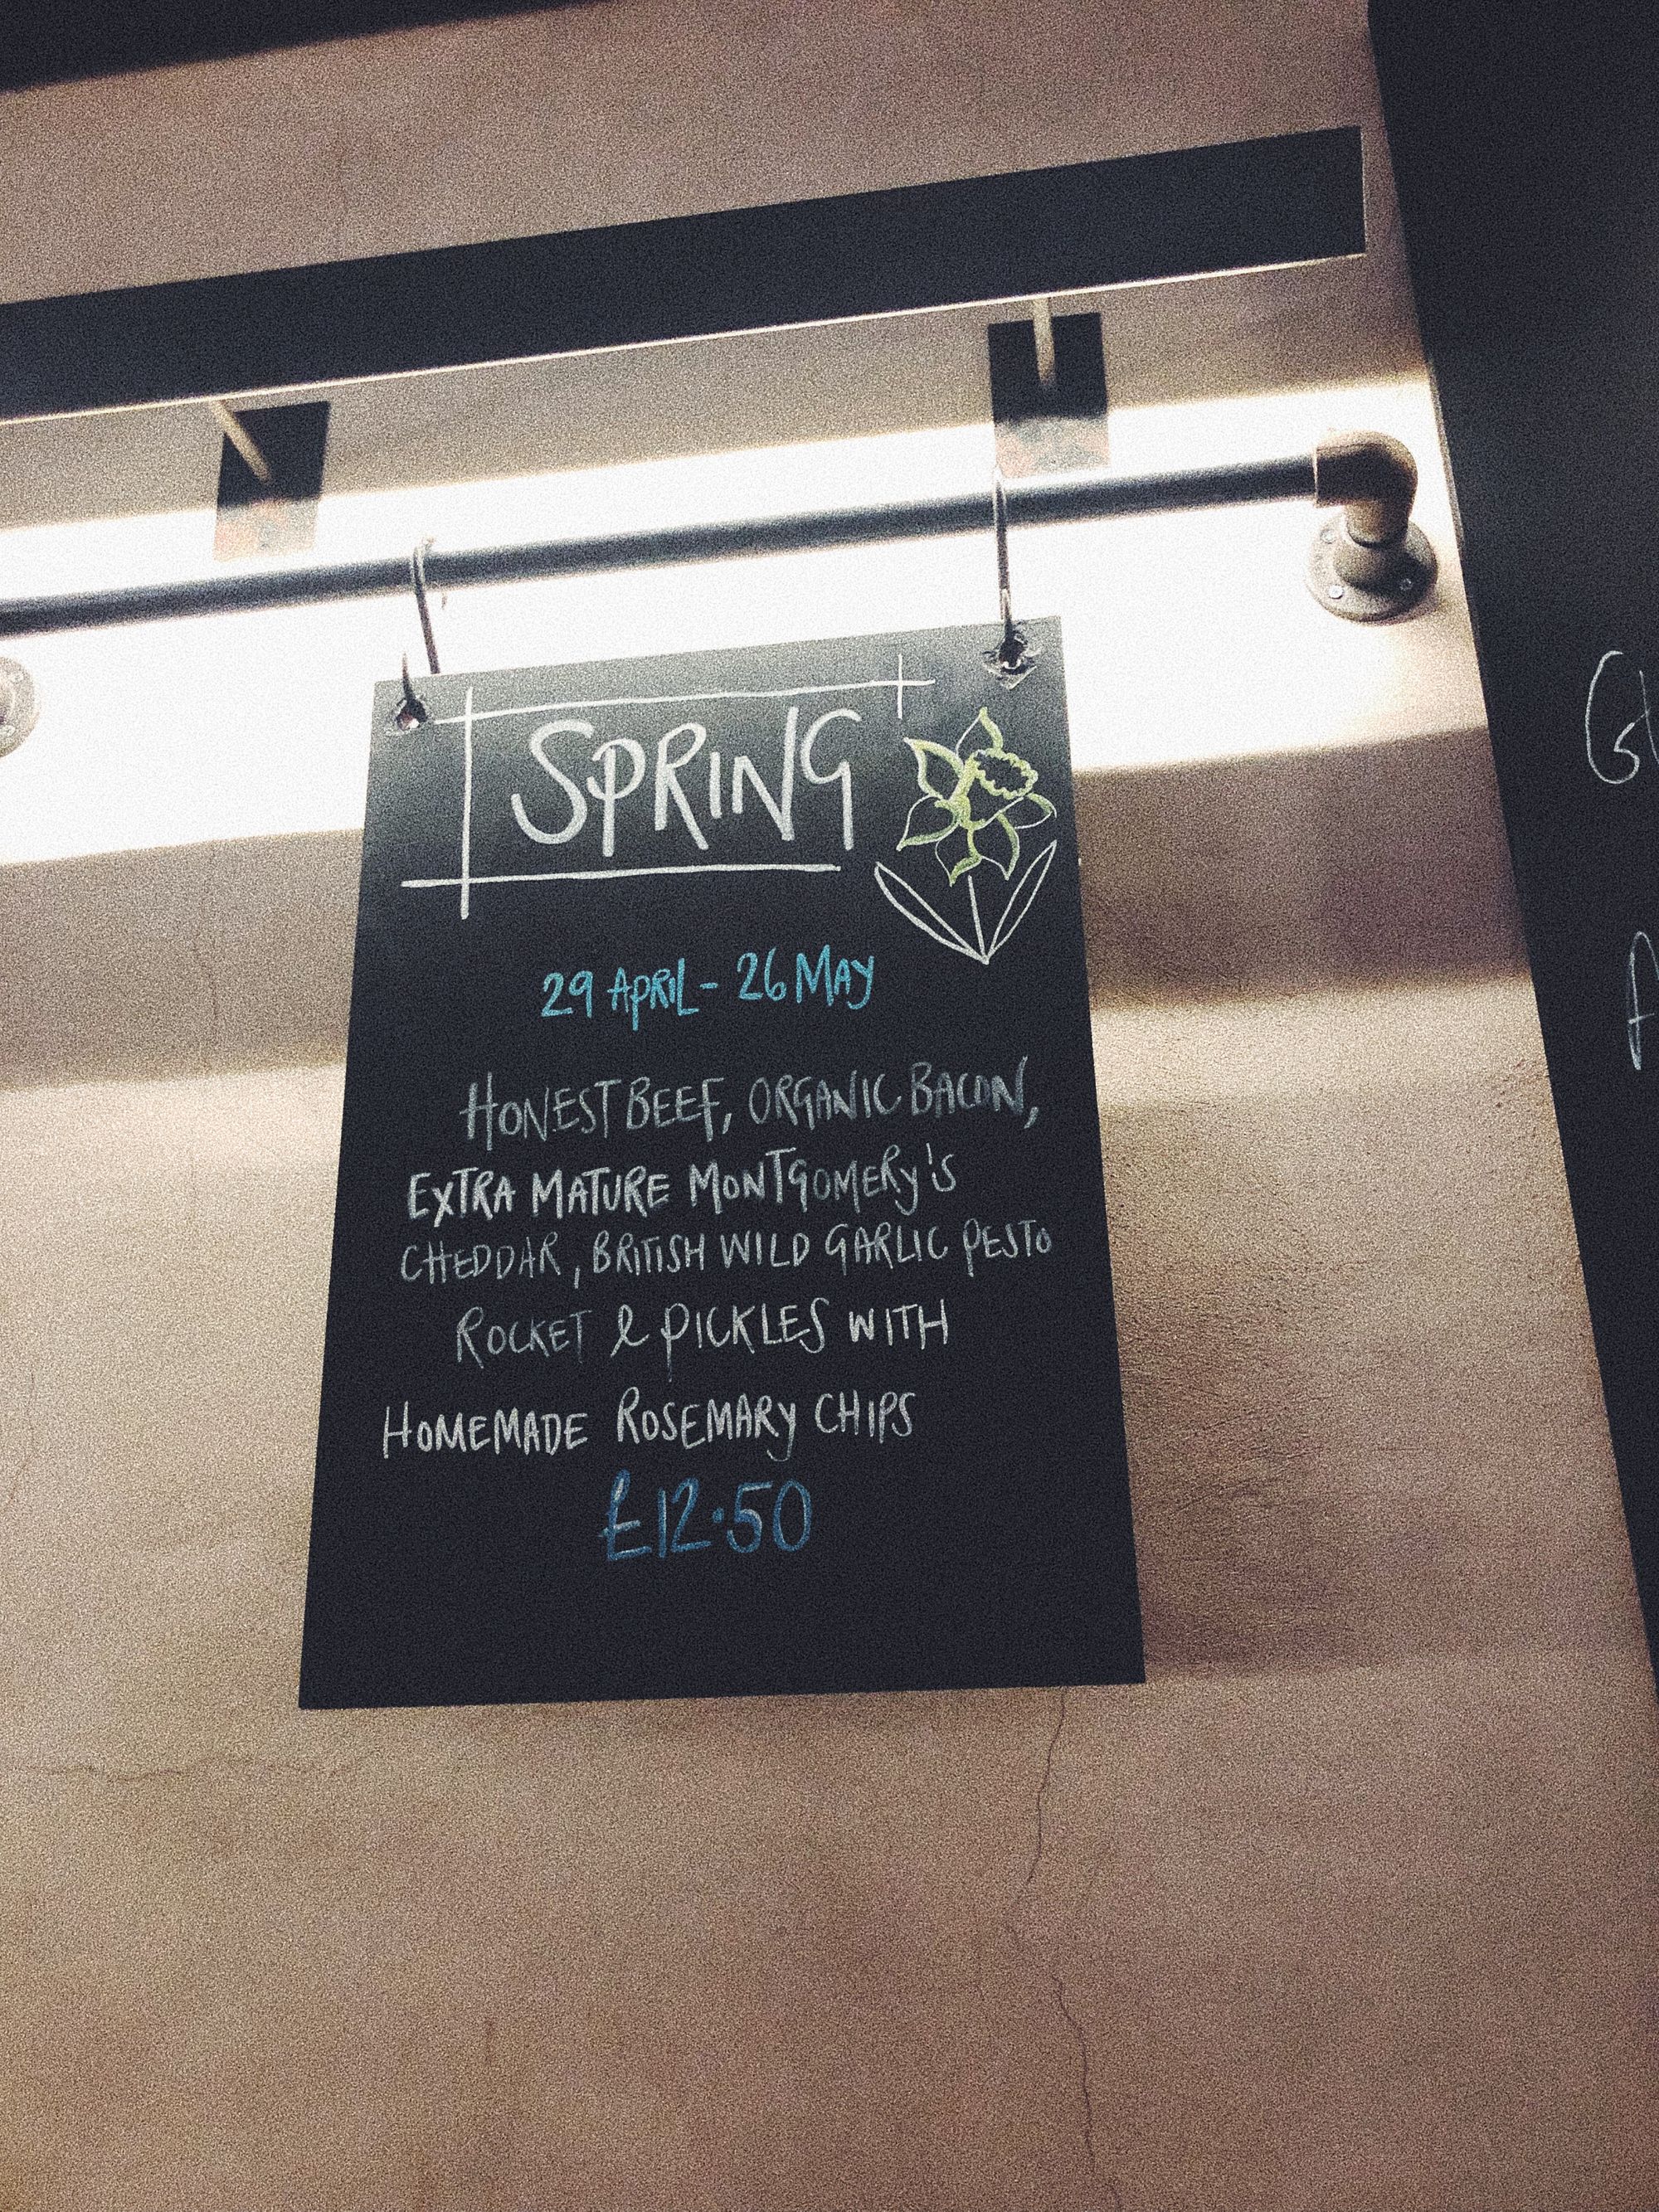 SPRING
29 APRIL - 26 MAY
HONEST BEEF, ORGANIC BACON,
EXTRA MATURE MONTGOMERY'S
CHEDDAR, BRITISH WILD GARLIC PESTO
ROCKET & PICKLES WITH
HOMEMADE ROSEMARY CHIPS
£12.50